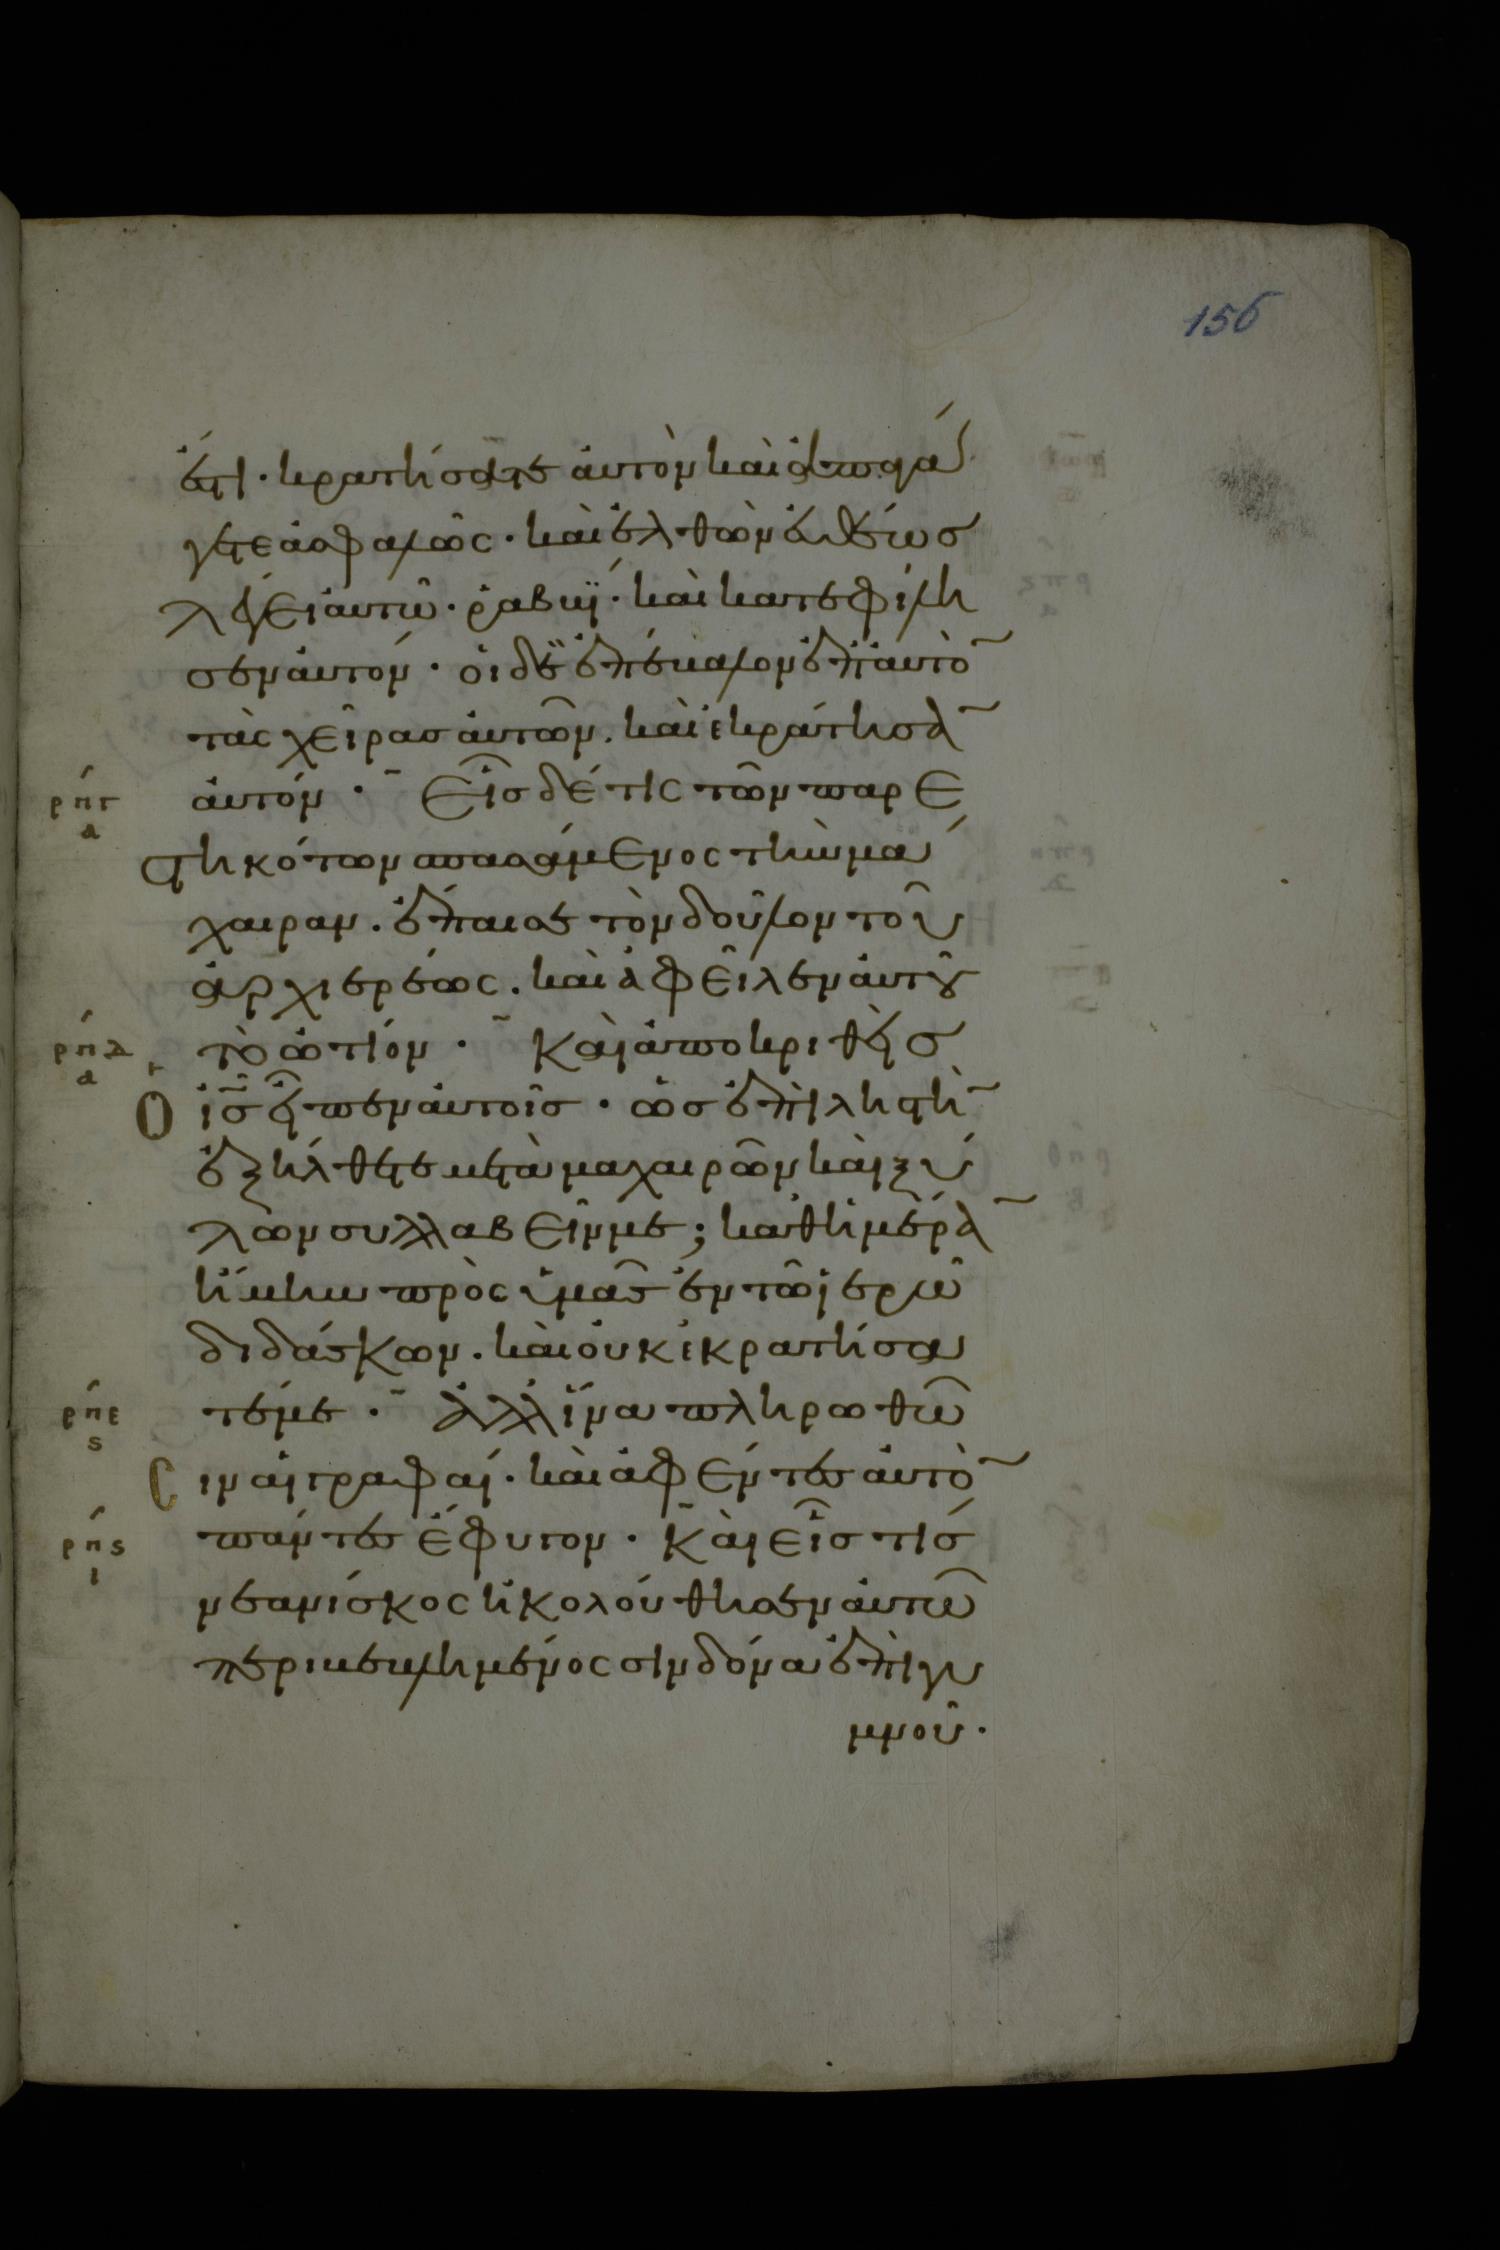 156
ἐστι· κρατήσατε ἀυτὸν καὶ ἀπαγά
γετε ἀσφαλῶς· καὶ ἐλθὼν ἐυθέως
λέγει ἀυτῶ· ῥαββί· καὶ κατεφίλη
σεν ἀυτόν· οἱ δὲ ἐπέβαλον ἐπ ἀυτὸ̅
τὰς χεῖρασ ἀυτῶν. καὶ ἐκράτησα̅
ρπγ α ἀυτόν· Εἷσ δέ τις τῶν παρε
στηκότων σπασάμενος τὴν μά
χαιραν. ἔπαισε τὸν δοῦλον τοῦ
ἀρχιερέως. καὶ ἀφεῖλεν ἀυτοῦ
ρπδ α τὸ ὠτίον· Καὶ ἀποκριθεὶσ
Ὁ ι̅σ̅ εἶπεν ἀυτοῖσ· ὡσ ἐπὶ ληστὴ̅
ἐξήλθετε μετὰ μαχαιρῶν καὶ ξύ
λων συλλαβεῖν με; καθημέρα̅
ἤμην πρὸς ὑμᾶσ ἐν τῶ ἱερῶ
διδάσκων. καὶ οὐκ ἐκρατήσα
ρπε ς τέ με· ἀλλ ἵνα πληρωθῶ
C ιν αἱ γραφαί. καὶ ἀφέντεσ ἀυτὸ̅
ρπς ι πάντεσ ἔφυγον· Καὶ εἷσ τισ
νεανίσκος ἠκολούθησεν ἀυτῶ
περιβεβλημένος σινδόνα ἐπὶ γυ
μνοῦ·